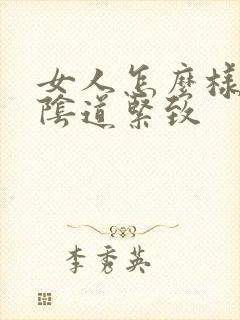 女人怎麼樣
陰道緊致
李秀英